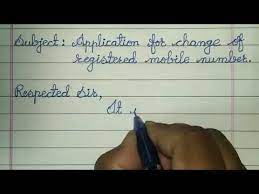 Subject: Application for change of
registered mobile number.
Respected sir,
It